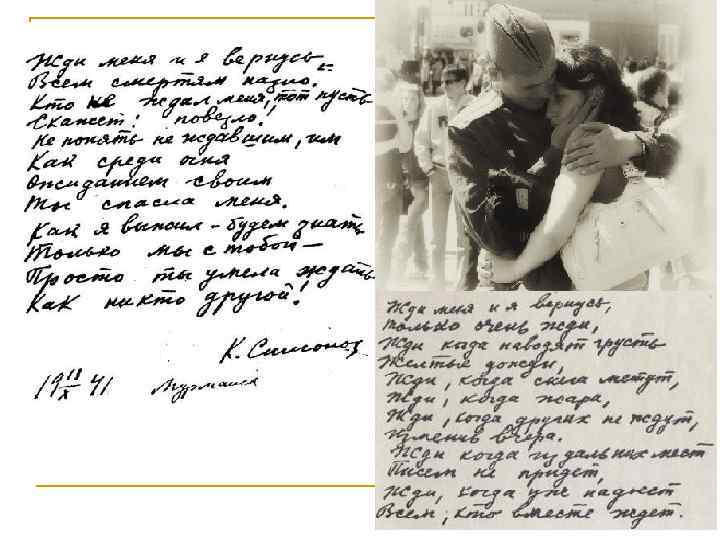 Жди меня и я вернусь
Всем смертям назло.
Кто не ждал меня, тот пусть
Скажет: повезло!
Не понять не ждавшим, им
Как среди огня
Ожиданием своим
Ты спасла меня.
Как я выжил – будем знать
Только мы с тобой –
Просто ты умела ждать
Как никто другой!
К. Симонов
19 13/X 41 Мурманск
Жди меня и я вернусь,
Только очень жди,
Жди когда наводят грусть
Желтые дожди,
Жди, когда снега метут,
Жди, когда жара,
Жди, когда других не ждут,
Изменив вчера.
Жди когда из дальних мест
Писем не придет,
Жди, когда уже надоест
Всем, кто вместе ждет.